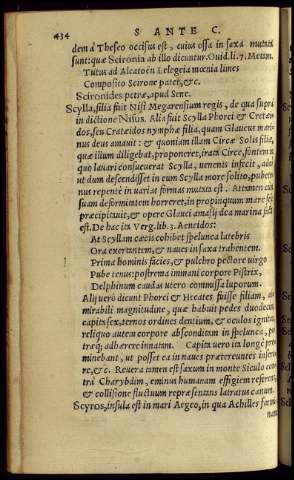 434 S ANTE C.
dem à Theseo occisus est, cuius ossa in saxa mutata
sunt: quæ Scironia ab illo dicuntur. Ouid. li. 7. Metam.
Tutus ad Alcatoën Lelegeia mœnia limes
Composito Scirone patet, &c.
Scironides petræ, apud Sene.
Scylla, filia fuit Nisi Megarensium regis, de qua suprà
in dictione Nisus. Alia fuit Scylla Phorci & Cretæi-
dos, seu Cratæidos nymphæ filia, quam Glaucus mari-
nus deus amauit: & quoniam illam Circæ Solis filiæ,
quæ illum diligebat, proponeret, irata Circe, fontem in
quo lauari consueuerat Scylla, uenenis infecit, adeò
ut dum descendisset in eum Scylla more solito, pubete-
nus repentè in uarias formas mutata est. Attamen cùm
suam deformitatem horreret, in propinquum mare se
præcipitauit, & opere Glauci amasij dea marina facta
est. De hac ita Verg. lib. 3. Aeneidos:
At Scyllam cæcis cohibet spelunca latebris
Ora exertantem, & naues in saxa trahentem.
Prima hominis facies, & pulchro pectore uirgo
Pube tenus: postrema immani corpore Pistrix,
Delphinum caudas utero commissa luporum.
Alij uerò dicunt Phorci & Hecates fuisse filiam,
mirabili magnitudine, quæ habuit pedes duodecim,
capita sex, ternos ordines dentium, & oculos ignitos,
reliquo autem corpore absconditam in spelunca,
træq; adhærere innatam. Capita uerò ita longè pro-
minebant, ut posset ea in naues prætereuntes
re, &c. Reuera tamen est saxum in monte Siculo con-
trà Charybdim, eminus humanam effigiem referens,
& collisione fluctuum repræsentans latratus canum.
Scyros, insula est in mari Aegeo, in qua Achilles